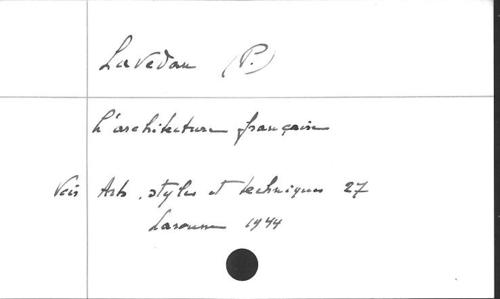 Lavedan (P.)
L'architecture française
Voir Arts, styles et techniques 27
Larousse 1944